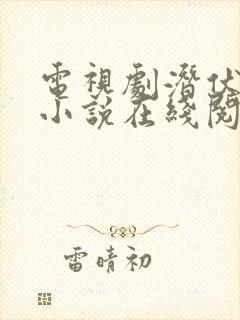 電視劇潛伏
小說在綫閱
雷晴初